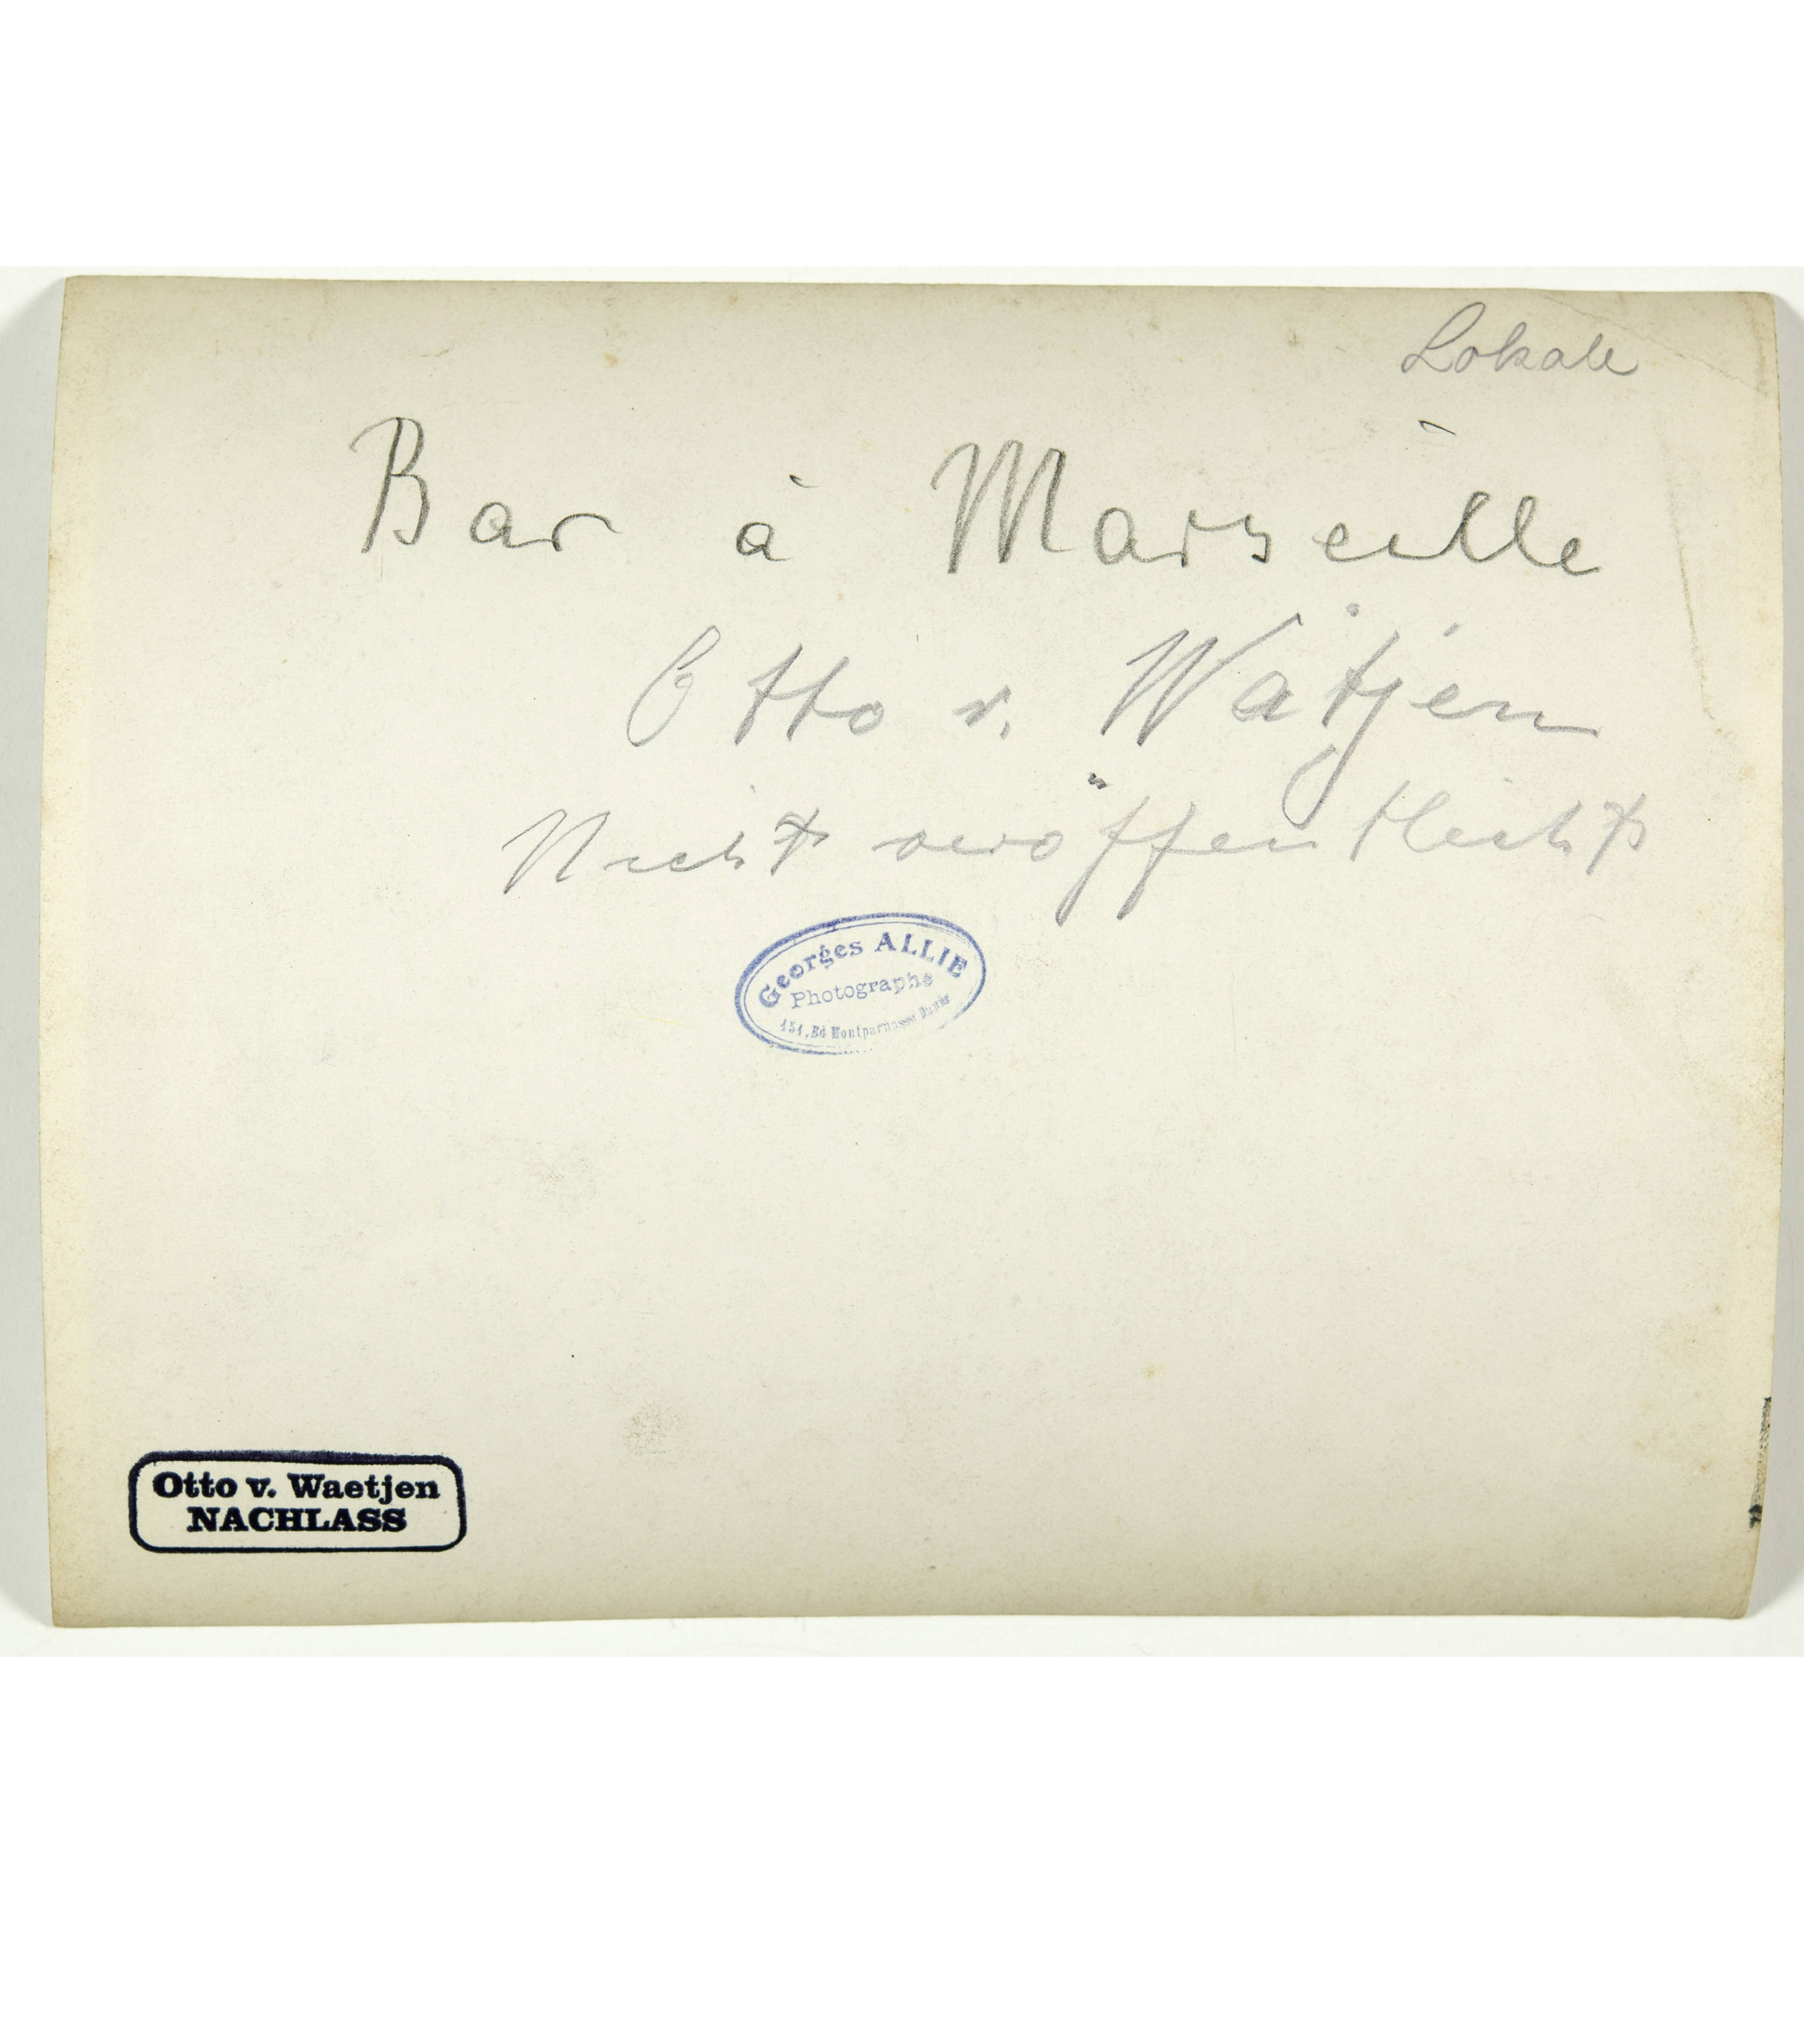 Lokale
Bar à Marseille
Otto v. Wätjen
Nicht veröffentlicht
Georges ALLIE
Photographe
151, Bd Montparnasse Paris
Otto v. Waetjen
NACHLASS